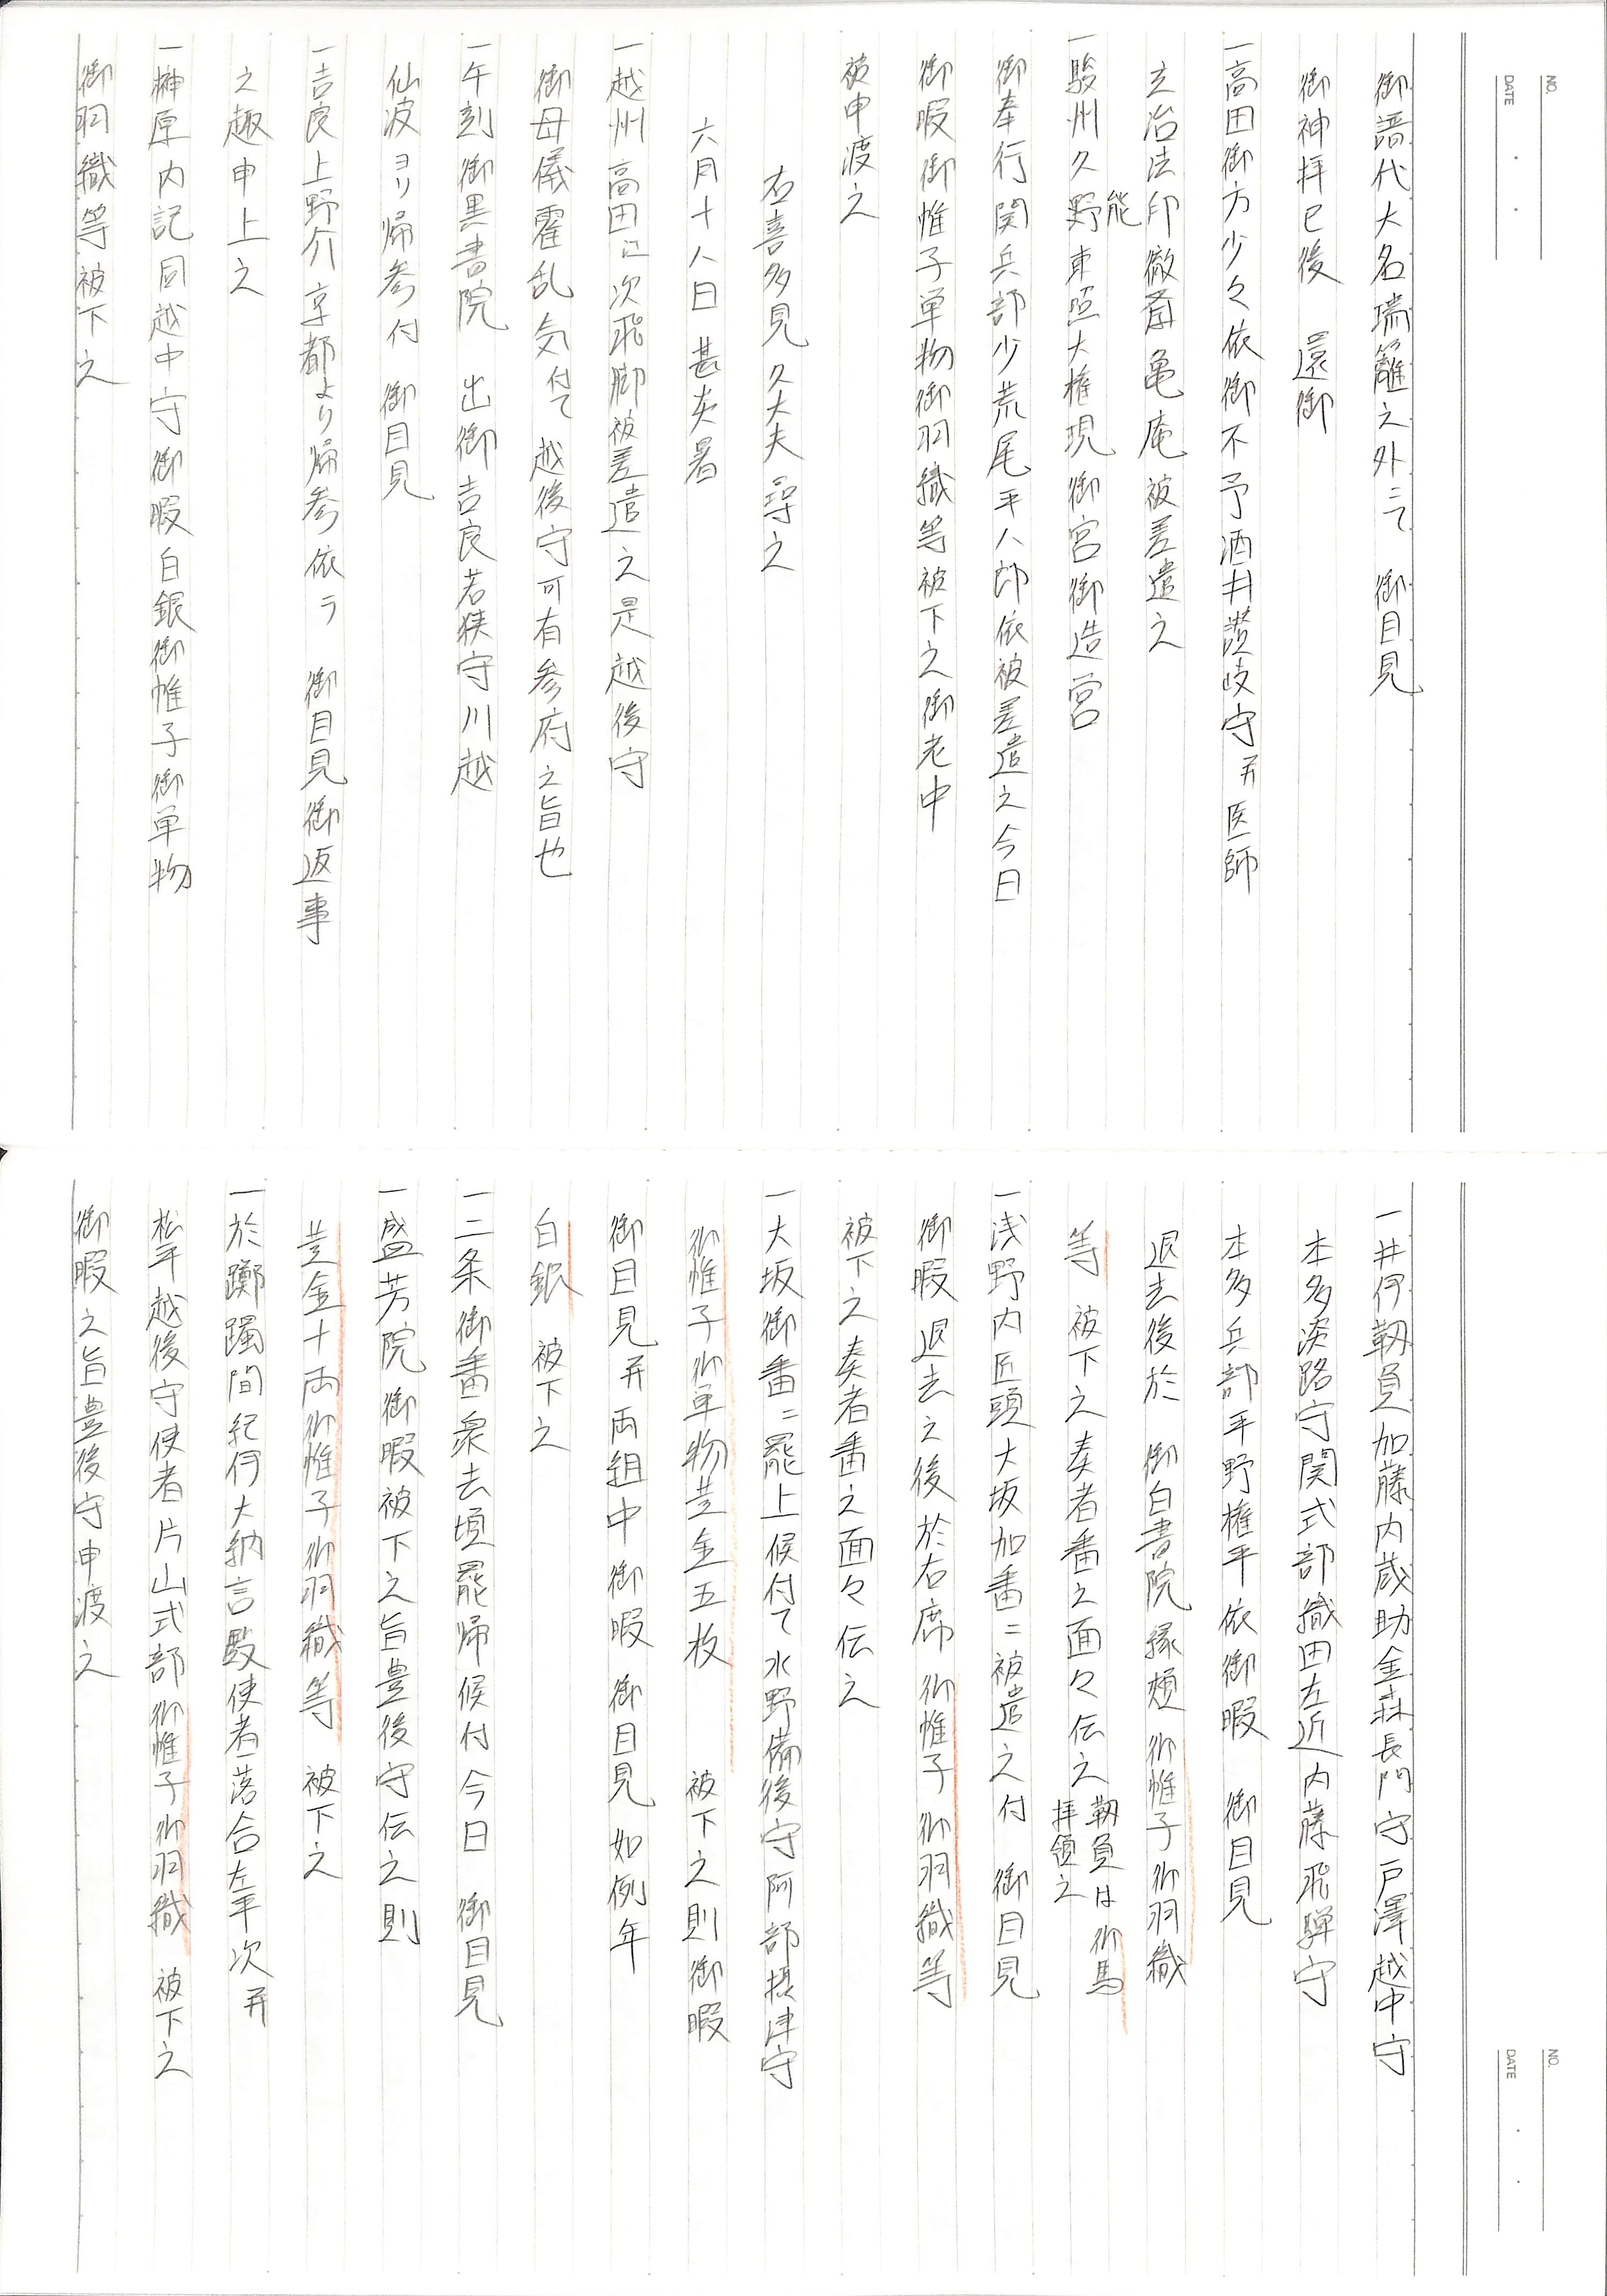 NO.
DATE
御譜代大名瑞籬之外ニて　御目見
御神拝已後　還御
一高田御方少々依御不予酒井讃岐守并医師
玄冶法印徹斎亀庵被差遣之
一駿州久野東照大権現御宮御造営
能
御奉行関兵部少荒尾平八郎依被差遣之今日
御暇御帷子単物御羽織等被下之御老中
被申渡之
右喜多見久大夫尋之
六月十八日　甚炎暑
一越州高田に次飛脚被差遣之是越後守
御母儀霍乱気付て越後守可有参府之旨也
一午刻御黒書院　出御吉良若狭守川越
仙波ヨリ帰参付　御目見
一吉良上野介京都より帰参依テ　御目見御返事
之趣申上之
一榊原内記同越中守御暇白銀御帷子御単物
御羽織等被下之
NO.
DATE
一井伊靱負加藤内蔵助金森長門守戸澤越中守
本多淡路守関式部織田左近内藤飛騨守
本多兵部平野権平依御暇　御目見
退去後於　御白書院縁頬御帷子御羽織
等　被下之奏者番之面々伝之
靱負は御馬
拝領之
一浅野内匠頭大坂加番ニ被遣之付　御目見
御暇退去之後於右席御帷子御羽織等
被下之奏者番之面々伝之
一大坂御番ニ罷上候付て水野備後守阿部摂津守
御帷子御単物黄金五枚　被下之則御暇
御目見并両組中御暇　御目見如例年
白銀　被下之
一二条御番衆去頃罷帰候付今日　御目見
一盛芳院御暇被下之旨豊後守伝之則
黄金十両御帷子御羽織等　被下之
一於躑躅間紀伊大納言殿使者落合左平次并
松平越後守使者片山式部御帷子御羽織　被下之
御暇之旨豊後守申渡之